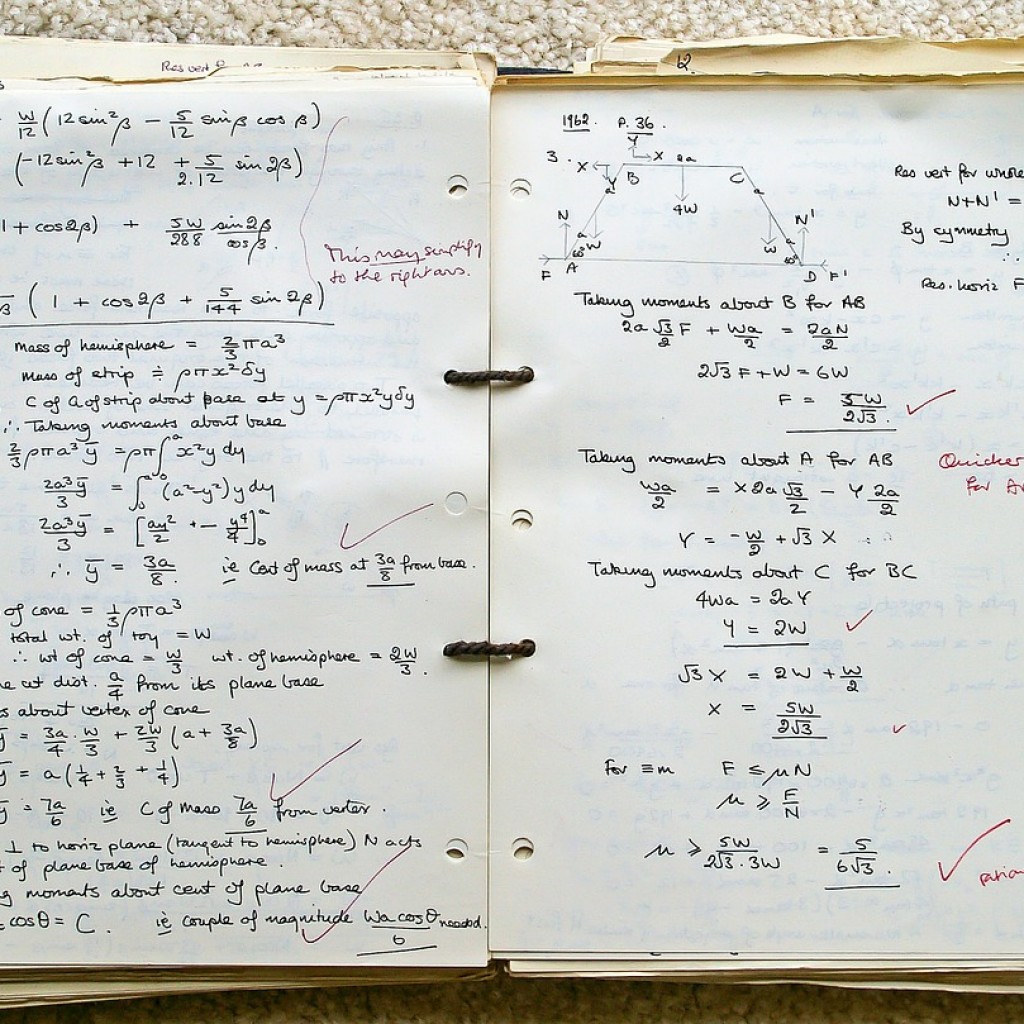 Res vert f
w/12 (12 sin²β − 5/12 sin β cos β)
(−12 sin²β + 12 + 5/2.12 sin 2β)
1 + cos 2β) + 5W/288 sin 2β/cos β.
This may simplify
to the right ans.
(1 + cos 2β + 5/144 sin 2β)
mass of hemisphere = 2/3 πa³
mass of strip ≑ ρπx²δy
C of G of strip about base at y = ρπx²yδy
∴ Taking moments about base
2/3 ρπa³ȳ = ρπ∫ᵃ x²y dy
2a³ȳ/3 = ∫₀ᵃ (a²−y²) y dy
2a³ȳ/3 = [ay²/2 + − y⁴/4]₀ᵃ
∴ ȳ = 3a/8. ie Cent of mass at 3a/8 from base.
of cone = 1/3 ρπa³
total wt. of toy = W
∴ wt of cone = W/3 wt. of hemisphere = 2W/3.
at dist. a/4 from its plane base
about vertex of cone
ȳ = 3a/4 . W/3 + 2W/3 (a + 3a/8)
ȳ = a(1/4 + 2/3 + 1/4)
ȳ = 7a/6 ie C of Mass 7a/6 from vertex.
⊥ to horiz plane (tangent to hemisphere) N acts
of plane base of hemisphere.
moments about cent of plane base
cos θ = C. ie couple of magnitude Wa cos θ/6 needed.
12
1962. P. 36.
3.
Y
X
X
2a
B
C
Y
a
a
4W
N
a
W
N'
a
W
60°
60°
F
A
D
F'
Res vert for whole
N+N' =
By symmetry
∴
Res. horiz F
Taking moments about B for AB
2a √3/2 F + Wa/2 = 2aN/2
2√3 F + W = 6W
F = 5W/2√3.
Taking moments about A for AB
Quicker
for
Wa/2 = X 2a √3/2 − Y 2a/2
Y = −W/2 + √3 X
Taking moments about C for BC
4Wa = 2aY
Y = 2W
√3 X = 2W + W/2
X = 5W/2√3
for ≡m F ≤ μN
μ ≥ F/N
μ ≥ 5W/2√3.3W = 5/6√3.